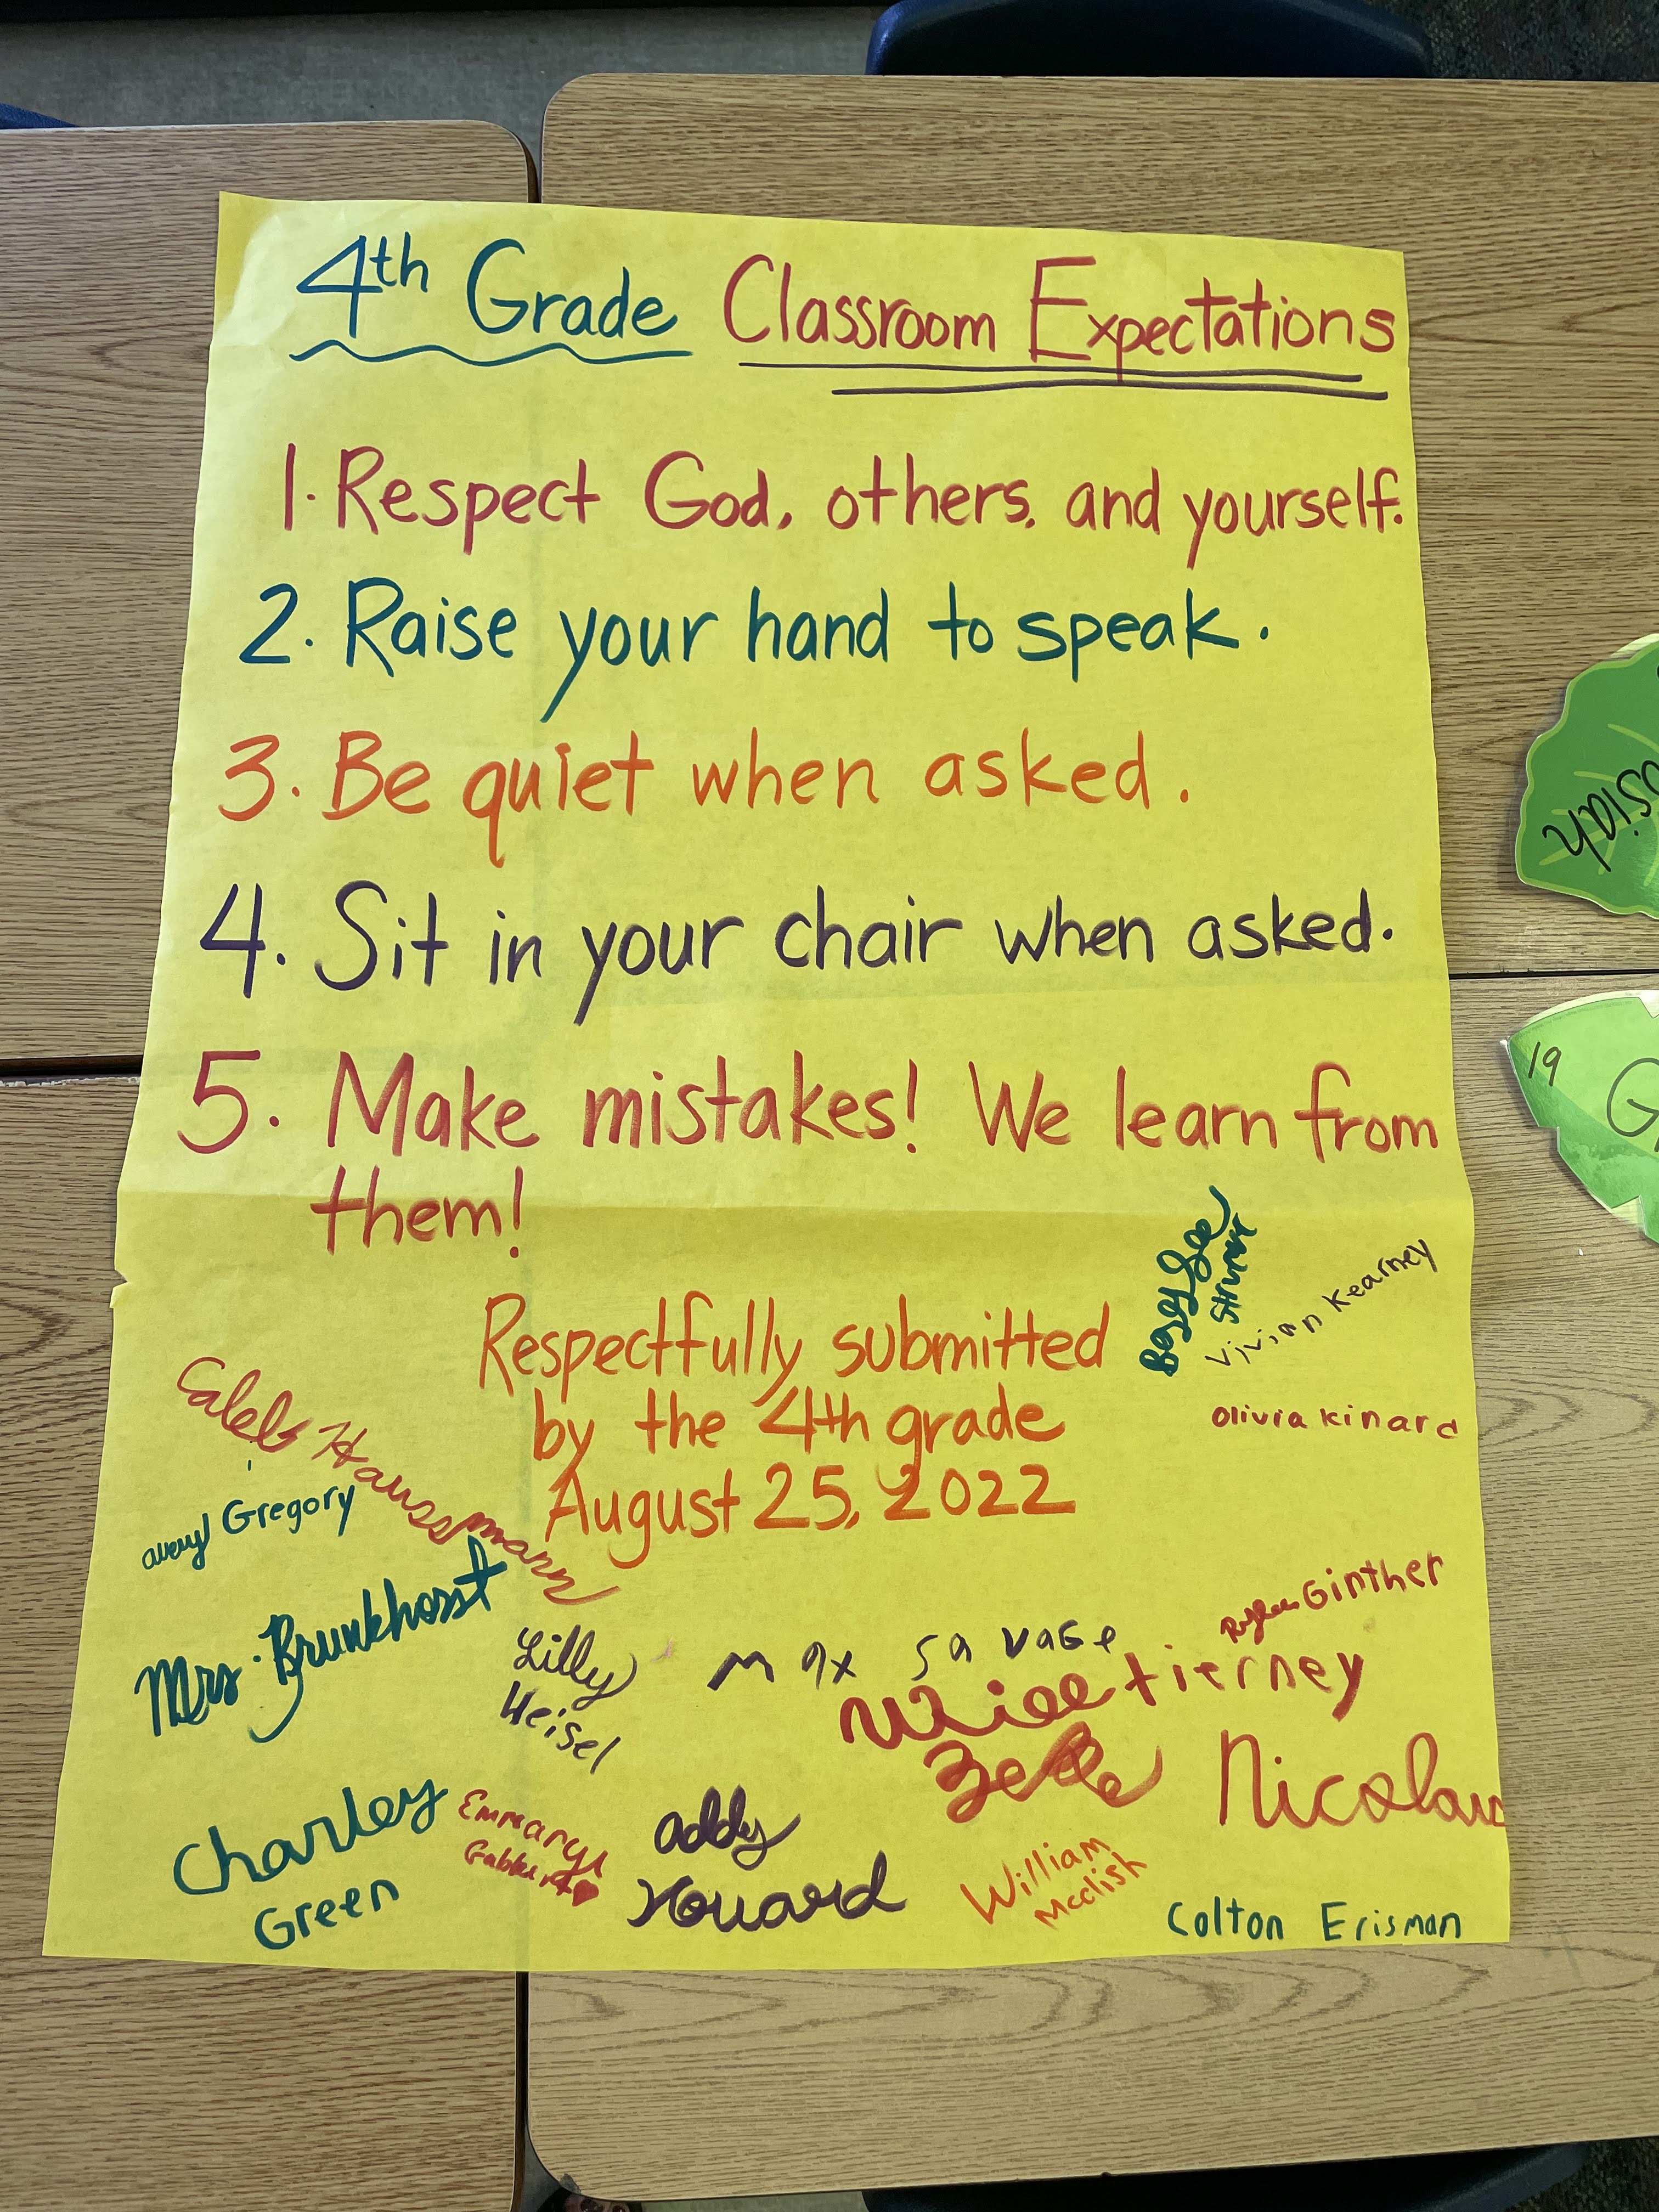 4th Grade Classroom Expectations
1. Respect God, others, and yourself.
2. Raise your hand to speak.
3. Be quiet when asked.
4. Sit in your chair when asked.
5. Make mistakes! We learn from
them!
Respectfully submitted
by the 4th grade
August 25, 2022
Livian Kearney
Olivia Kinard
Caleb Haussmann
averyl Gregory
Mrs. Brunkhorst
Lilly
Heisel
Max Savage
Ginther
Will tierney
Nicolaus
Charley
Green
Emmaryn
addy
Houard
William
McClish
Colton Erisman
19